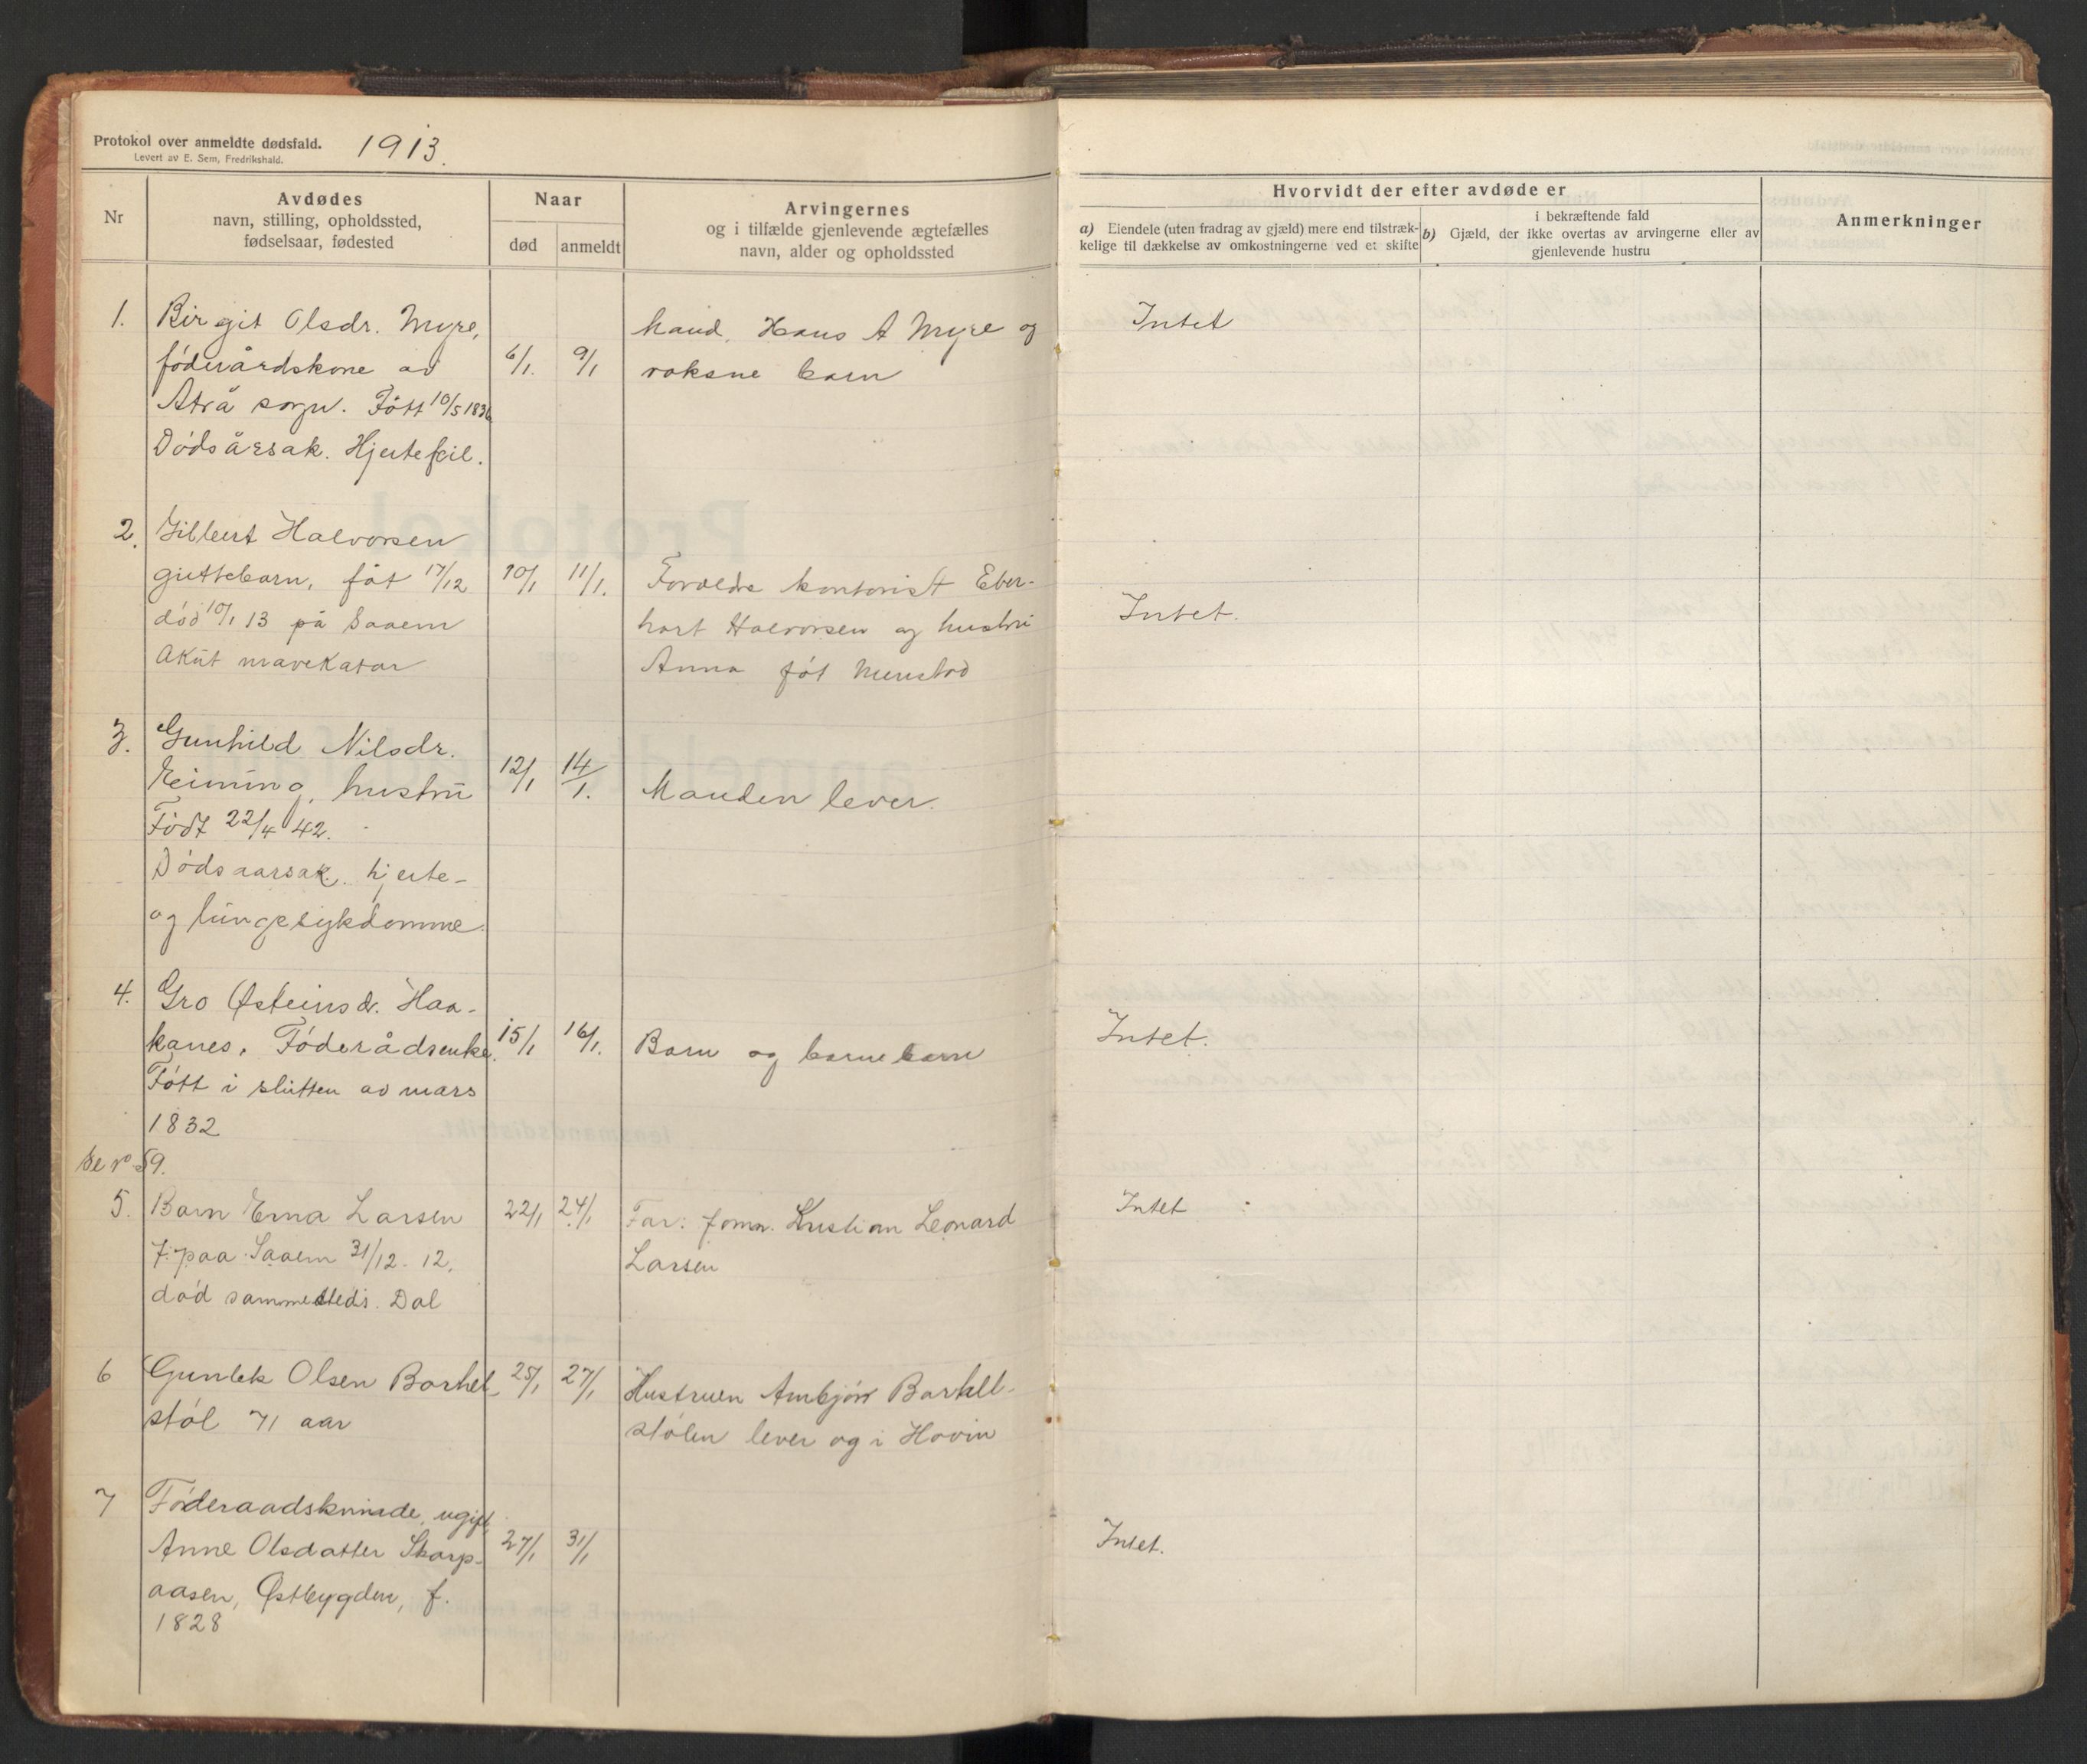 Protokol over anmeldte dødsfald. 1913.
Levert av E. Sem, Fredrikshald.
Nr
Avdødes
navn, stilling, opholdssted,
fødselsaar, fødested
Naar
død
anmeldt
Arvingernes
og i tilfælde gjenlevende ægtefælles
navn, alder og opholdssted
Hvorvidt der efter avdøde er
a) Eiendele (uten fradrag av gjæld) mere end tilstræk-
kelige til dækkelse av omkostningerne ved et skifte
i bekræftende fald
b) Gjæld, der ikke overtas av arvingerne eller av
gjenlevende hustru
Anmerkninger
1.
Birgit Olsdr. Myre,
föderårdskone av
Atrå sogn. Fött 10/5 1836
Dödsårsak. Hjertefeil.
6/1. 9/1
Mand. Hans A Myre og
voksne barn
Intet
2.
Gilbert Halvorsen
guttebarn, föt 17/12
död 10/1 13 på Saaem
Akut mavekatar
10/1 11/1.
Foreldre kontorist Eber-
hart Halvorsen og hustru
Anna föt
Intet.
3.
Gunhild Nilsdr.
hustru
Födt 22/4 42.
Dödsaarsak. hjerte-
og lungesykdomme.
12/1 14/1.
Manden lever.
4.
Gro Østeinsdr. Haa-
kanes. Föderådsenke.
Fött i slutten av mars
1832
15/1 16/1.
Barn og barnebarn
Intet.
Se no 59.
5.
Barn Erna Larsen
F. paa Saaem 31/12. 12.
död sammesteds. Dal
22/1 24/1
Far: Kristian Leonard
Larsen
Intet
6
Gunlek Olsen Barhel-
stöl 71 aar
25/1 27/1
Hustruen Ambjör Barhell-
stölen lever og i Hovin
7
Föderaadskvinde, ugift
Anne Olsdatter Skarp-
aasen, Østbygden, f.
1828
27/1 31/1
Intet.